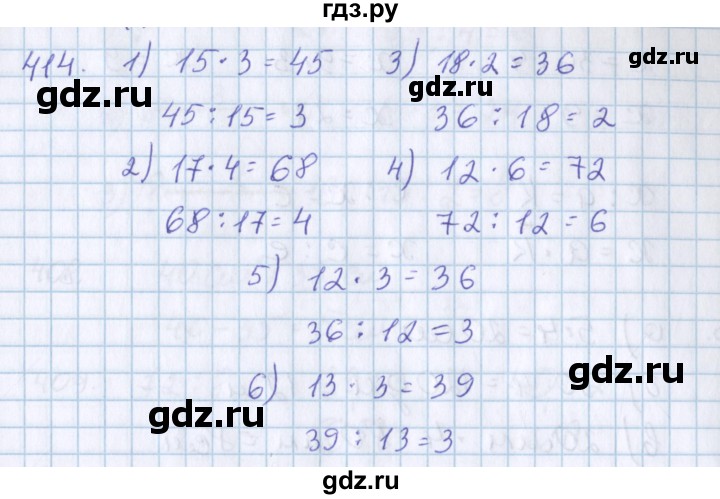 гдз.ру
414. 1) 15 · 3 = 45 3) 18 · 2 = 36
gdz.ru gdz.ru
45 : 15 = 3 36 : 18 = 2
2) 17 · 4 = 68 4) 12 · 6 = 72
68 : 17 = 4 72 : 12 = 6
5) 12 · 3 = 36
36 : 12 = 3
gdz.ru
6) 13 · 3 = 39
gdz.ru
39 : 13 = 3
gdz.ru